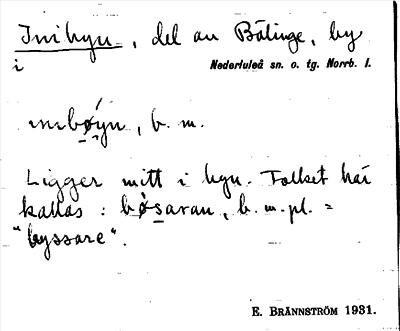 Inibyn, del av Bälinge, by
i Nederluleå sn. o. tg. Norrb. l.
inibǿyn, b. m.
Ligger mitt i byn. Folket här
kallas : bǿsaran, b. m. pl. =
"byssare".
E. BRÄNNSTRÖM 1931.